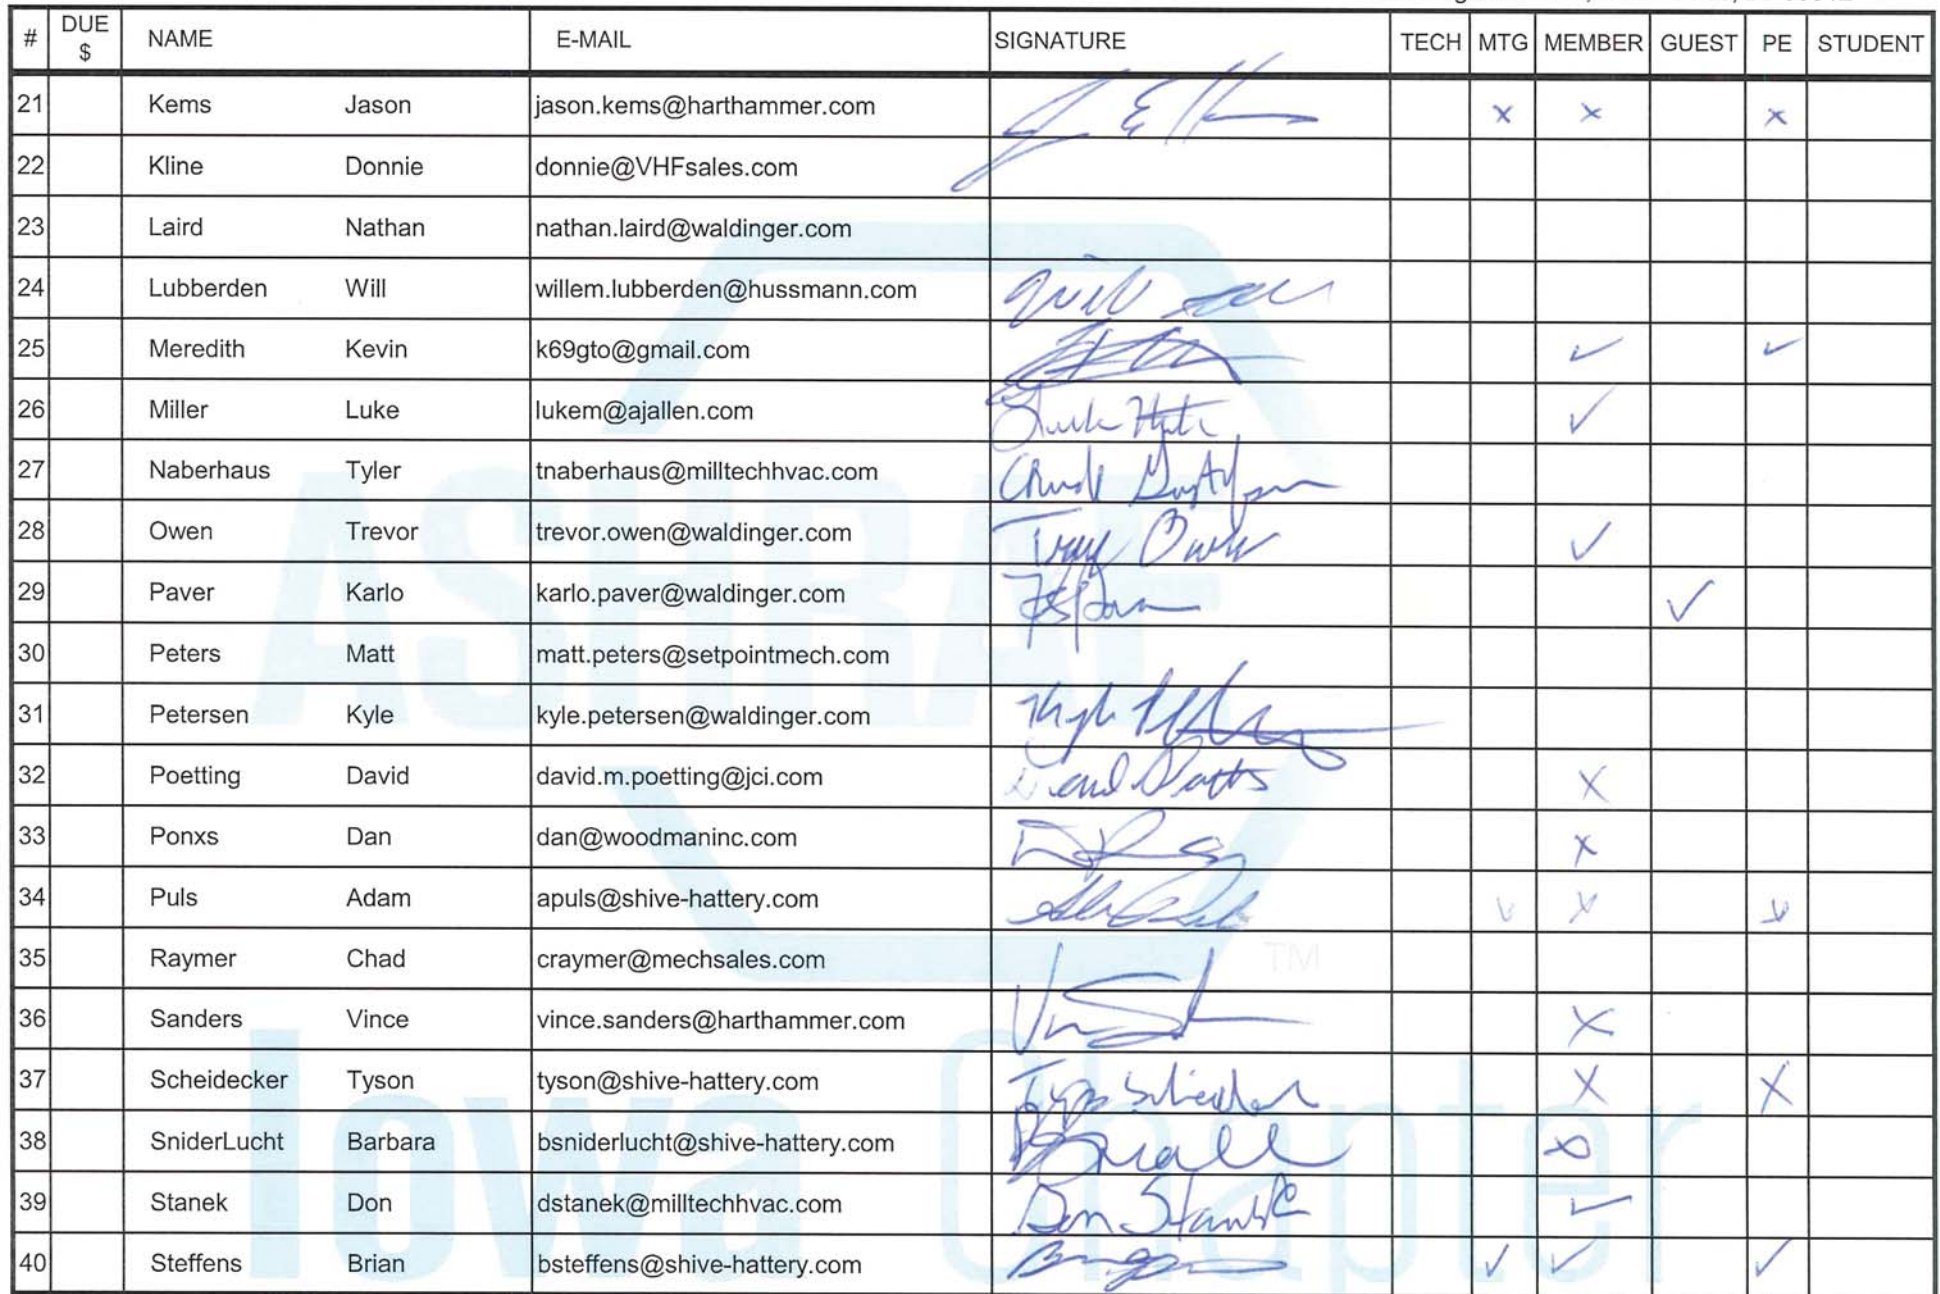 # DUE $ NAME E-MAIL SIGNATURE TECH MTG MEMBER GUEST PE STUDENT
21 Kems Jason jason.kems@harthammer.com x x x
22 Kline Donnie donnie@VHFsales.com
23 Laird Nathan nathan.laird@waldinger.com
24 Lubberden Will willem.lubberden@hussmann.com
25 Meredith Kevin k69gto@gmail.com ✓ ✓
26 Miller Luke lukem@ajallen.com ✓
27 Naberhaus Tyler tnaberhaus@milltechhvac.com
28 Owen Trevor trevor.owen@waldinger.com ✓
29 Paver Karlo karlo.paver@waldinger.com ✓
30 Peters Matt matt.peters@setpointmech.com
31 Petersen Kyle kyle.petersen@waldinger.com
32 Poetting David david.m.poetting@jci.com X
33 Ponxs Dan dan@woodmaninc.com x
34 Puls Adam apuls@shive-hattery.com
35 Raymer Chad craymer@mechsales.com
36 Sanders Vince vince.sanders@harthammer.com X
37 Scheidecker Tyson tyson@shive-hattery.com X X
38 SniderLucht Barbara bsniderlucht@shive-hattery.com
39 Stanek Don dstanek@milltechhvac.com Don Stanek ✓
40 Steffens Brian bsteffens@shive-hattery.com ✓ ✓ ✓
ASHRAE
TM
Iowa Chapter